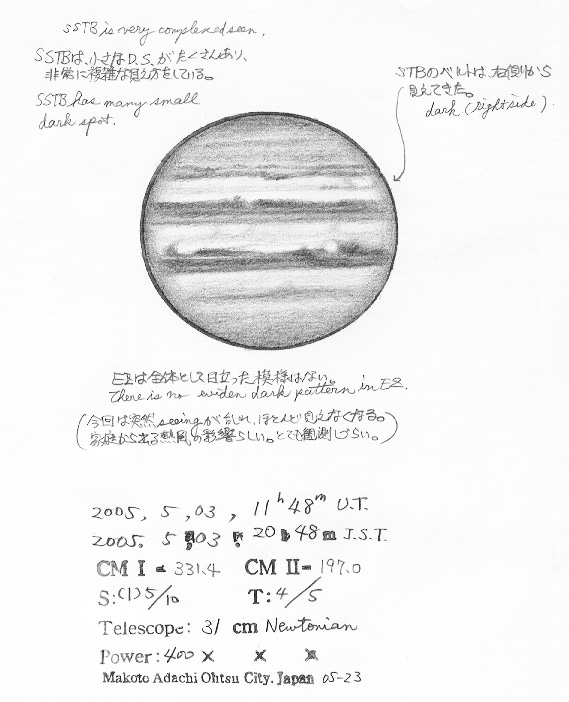 SSTB is very complexed seen.
SSTBは、小さなD.S.がたくさんあり、
非常に複雑な見え方をしている。
SSTB has many small
dark spot.
STBのベルトは、右側から
見えてきた。
dark (right side).
EZは全体として目立った模様はない。
There is no eviden dark pattern in EZ.
(今回は突然seeingが乱れ、ほとんど見えなくなる。
家庭から出る熱風の影響らしい。とても観測しづらい。)
2005, 5, 03, 11h 48m U.T.
2005. 5 03 20 48m J.S.T.
CM I = 331.4 CM II= 197.0
S:(1)5/10 T:4/5
Telescope: 31 cm Newtonian
Power:400 × × ×
Makoto Adachi Ohtsu City. Japan 05-23